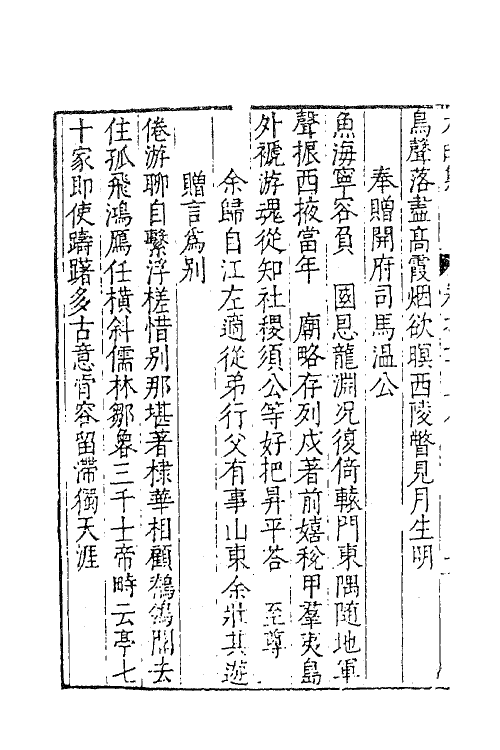 鳥聲落盡髙霞烟欲暝西陵瞥見月生明
奉贈開府司馬溫公
魚海寧容負　國恩龍淵况復倚轅門東隅隨地軍
聲振西掖當年　廟略存列戍著前嬉稅甲羣夷島
外褫游魂從知社稷須公等好把昇平荅　至尊
余歸自江左適從弟行父有事山東余壯其遊
贈言爲别
倦游聊自繫浮槎惜别那堪著棣華相顧鶺鴒關去
住孤飛鴻鴈任橫斜儒林鄒魯三千士帝時云亭七
十家即使躊躇多古意肯容留滯獨天涯